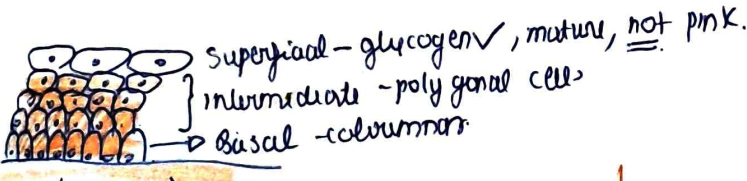 superficial - glycogen✓, mature, not pink.
intermediate - polygonal cells
Basal - columnar